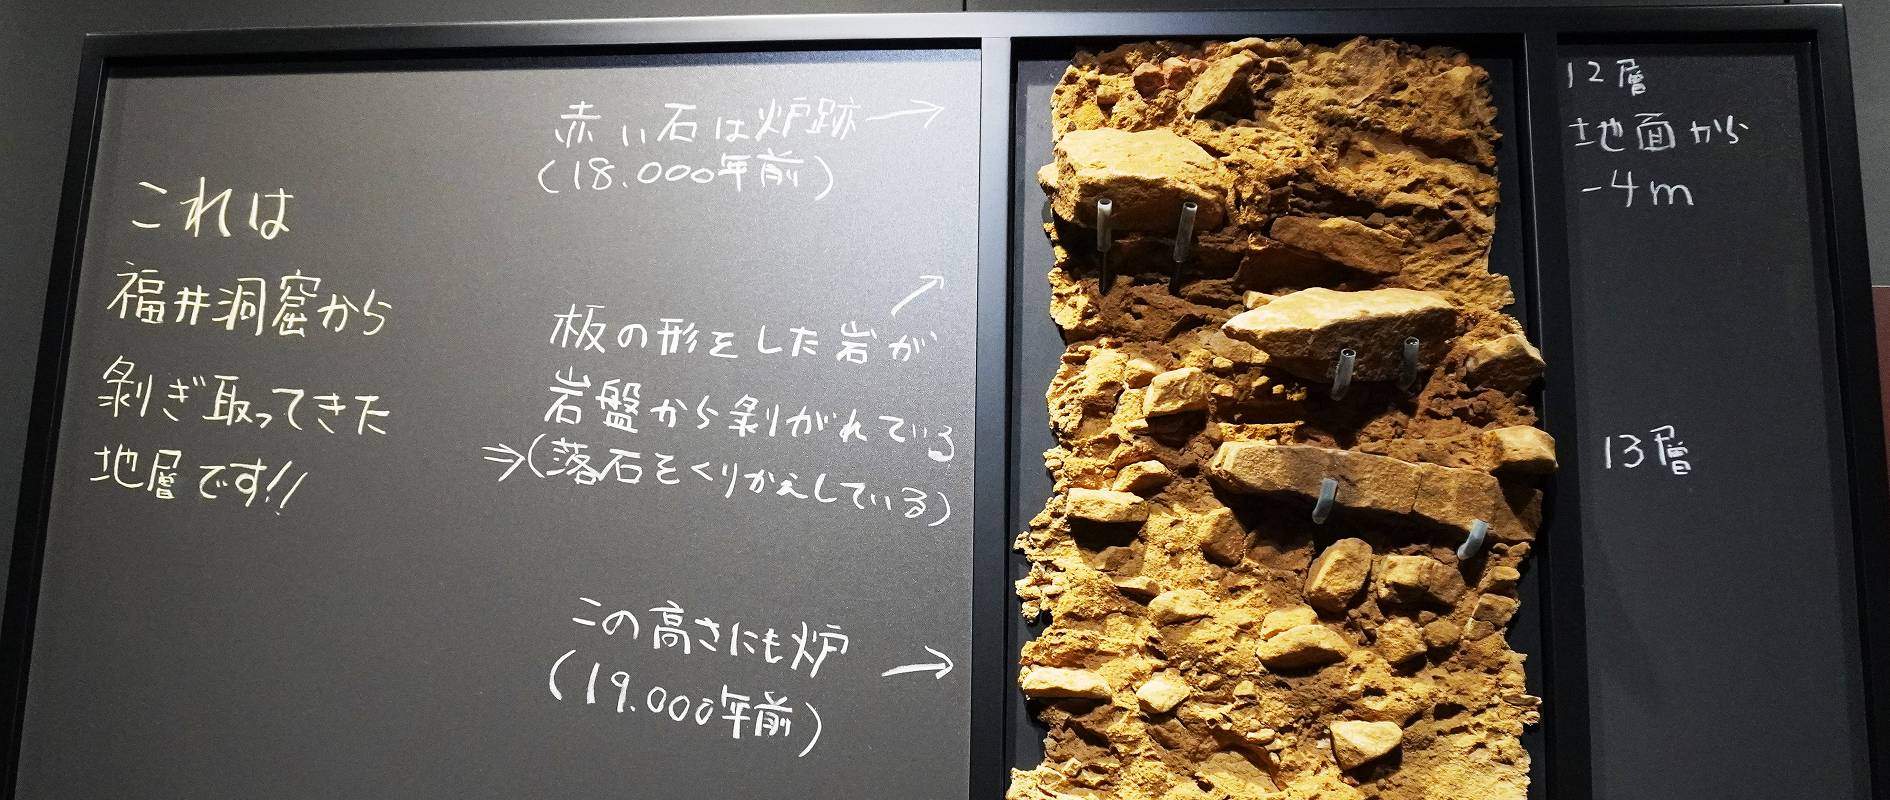 これは
福井洞窟から
剥ぎ取ってきた
地層です!!
赤い石は炉跡→
(18.000年前)
↗
板の形をした岩が
岩盤から剥がれている
⇒(落石をくりかえしている)
この高さにも炉→
(19.000年前)
12層
地面から
-4m
13層